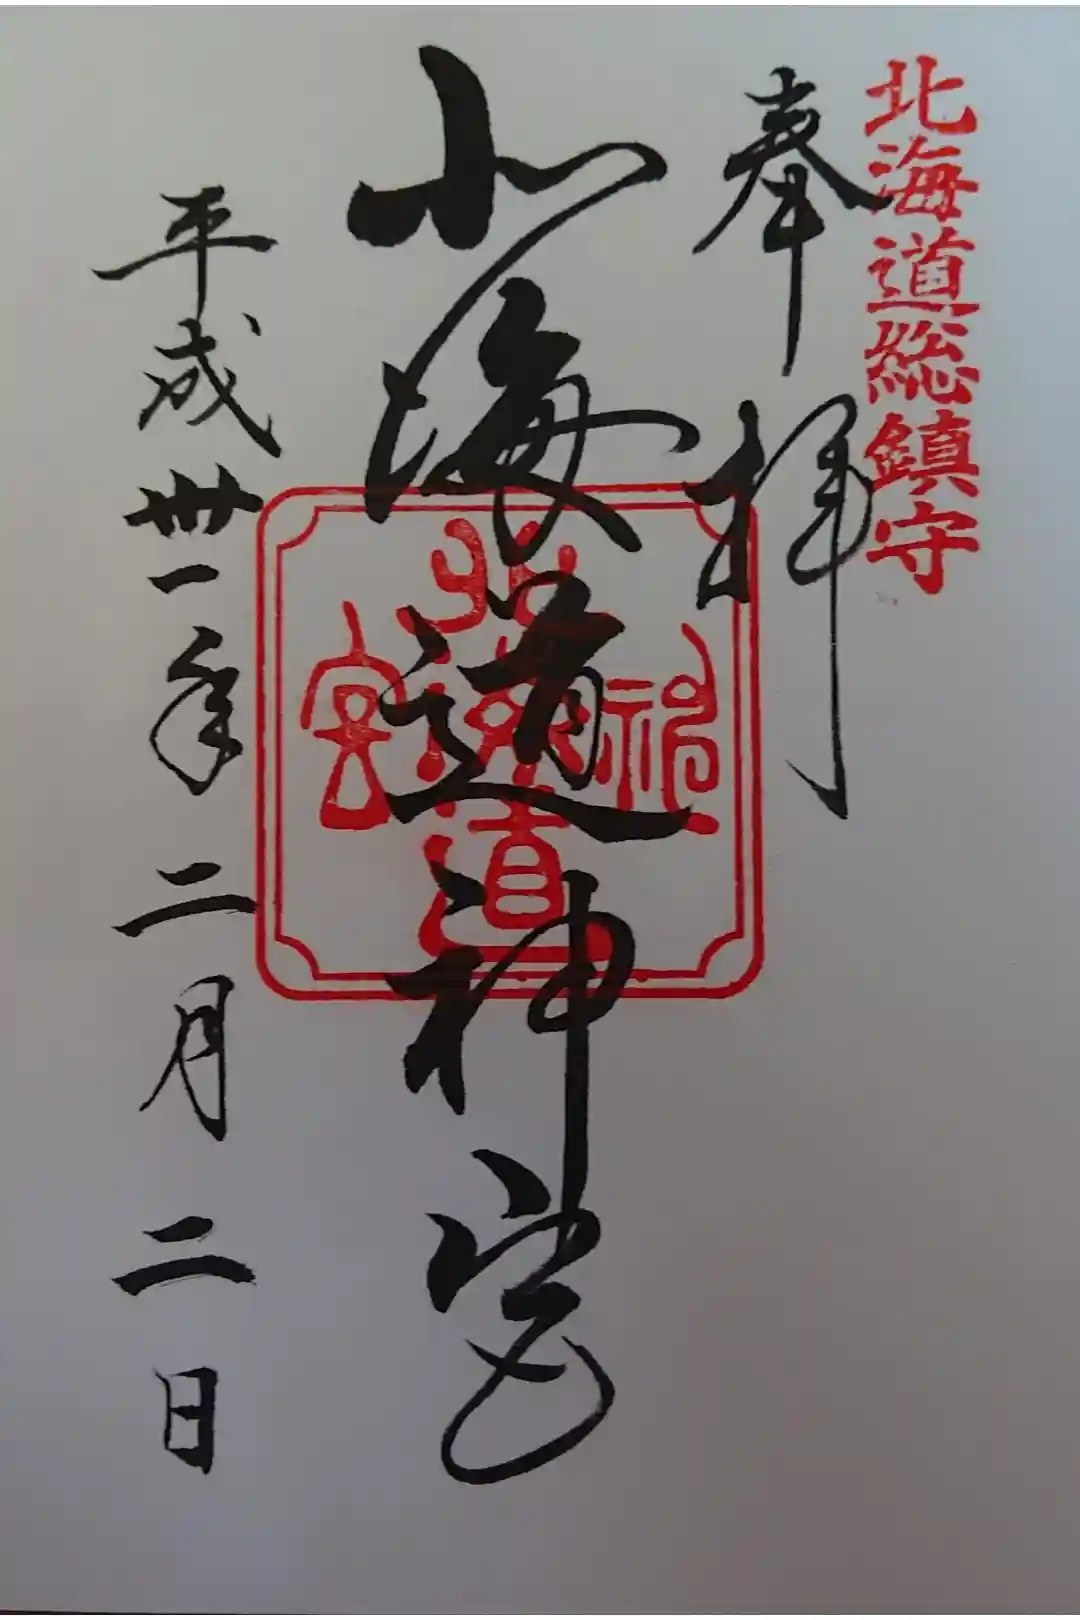 北海道総鎮守
奉拝
北海道神宮
北海道神宮
平成卅一年二月二日